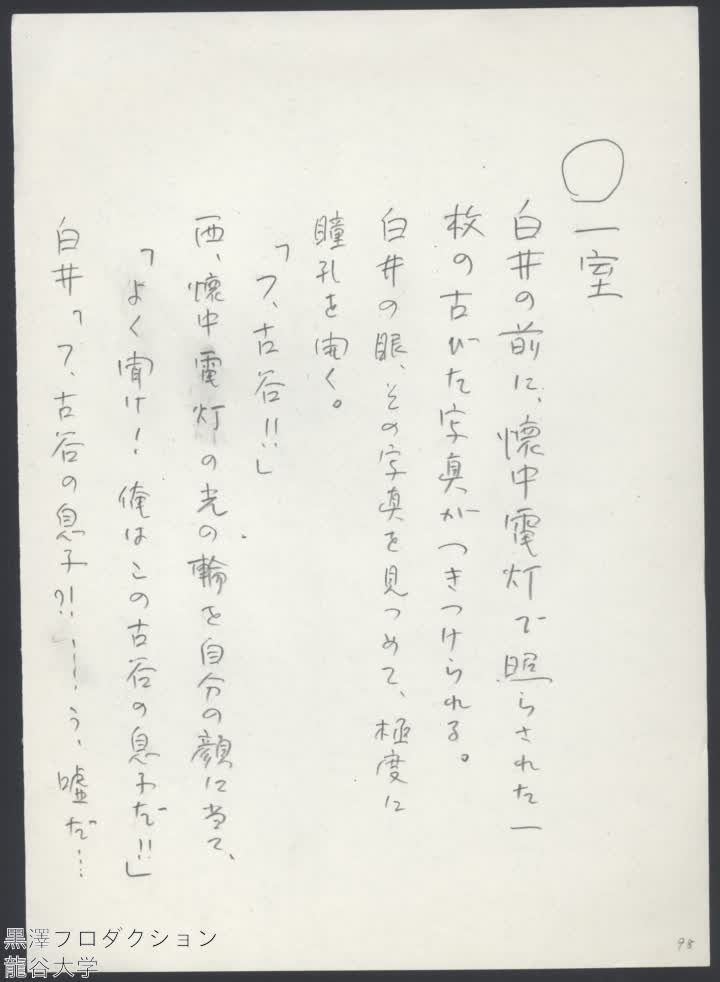 ○一室
白井の前に、懐中電灯で照らされた一
枚の古びた写真がつきつけられる。
白井の眼、その写真を見つめて、極度に
瞳孔を開く。
「フ、古谷!!」
西、懐中電灯の光の輪を自分の顔に当て、
「よく聞け!俺はこの古谷の息子だ!!」
白井「フ、古谷の息子?!……う、嘘だ…
98
黒澤フロダクション
龍谷大学